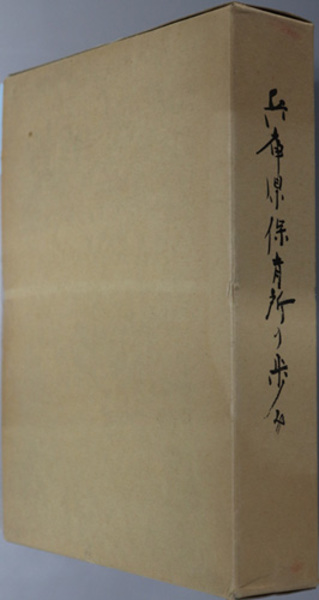 兵庫県保育所の歩み